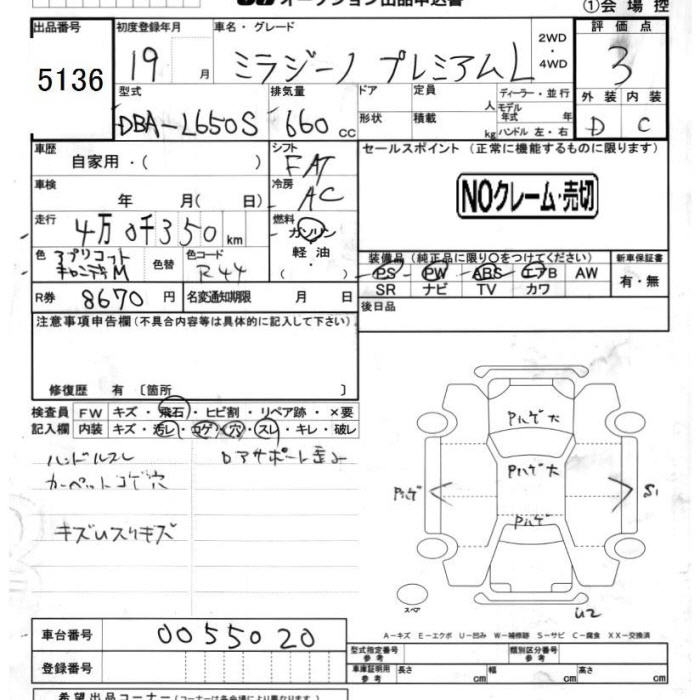 オークション出品申込書
①会場控
出品番号 初度登録年月 車名・グレード 評価点
5136 19 月 ミラジーノ プレミアムL 2WD・4WD 3
型式 排気量 ドア 定員 人 ディーラー・並行 外装 内装
DBA-L650S 660 cc 形状 積載 kg モデル年式 年式 ハンドル 左・右 D C
車歴 自家用・( ) シフト FAT セールスポイント(正常に機能するものに限ります)
車検 年 月( 日) 冷房 AC NOクレーム・売切
走行 4万0千350km 燃料 ガソリン・軽油・( )
色 アプリコット M 色替 色コード R44 装備品(純正品に限り○をつけてください) 新車保証書
PS PW ABS エアB AW 有・無
R券 8670円 名変通知期限 月 日 SR ナビ TV カワ
注意事項申告欄(不具合内容等は具体的に記入して下さい。) 後日品
修復歴 有 〔箇所 〕
検査員 FW キズ・飛石・ヒビ割・リペア跡・×要
記入欄 内装 キズ・汚レ・コゲ・穴・スレ・キレ・破レ
ハンドルスレ
カーペットコゲ穴
キズ
Pハゲ大
Pハゲ大
Pハゲ
Pハゲ
S1
U2
スペア
A-キズ E-エクボ U-凹み W-補修跡 S-サビ C-腐食 XX-交換済
車台番号 0055020 型式指定番号 参考 類別区分番号 参考
登録番号 車庫証明用 参考 長さ cm 幅 cm 高さ cm
希望出品コーナー(コーナーは各会場により異なります。)